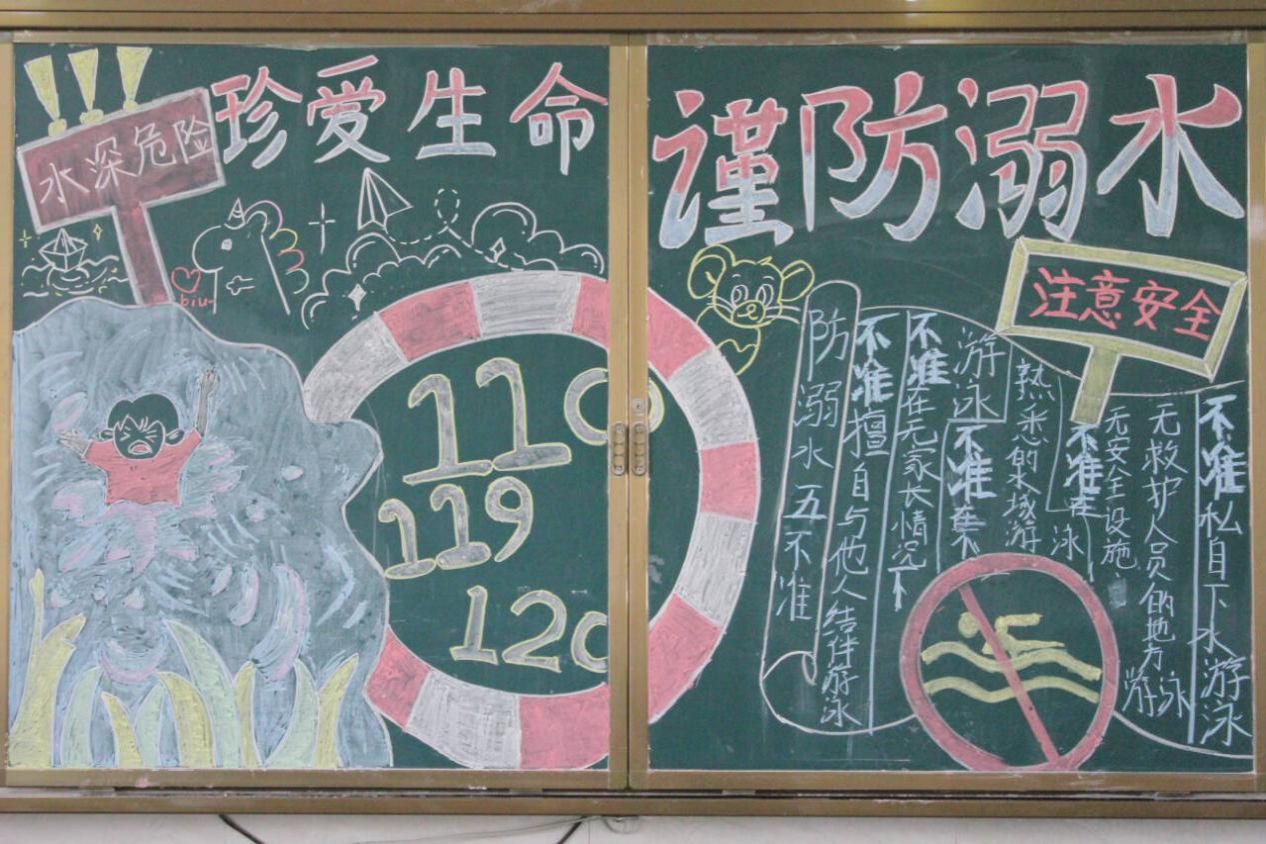 水深危险
珍爱生命
biu~
110
119
120
谨防溺水
注意安全
防溺水五不准
不准擅自与他人结伴游泳
不准在无家长情况下
游泳
不准在不
熟悉的水域游
泳
不准在
无安全设施
无救护人员的地方游泳
不准私自下水游泳